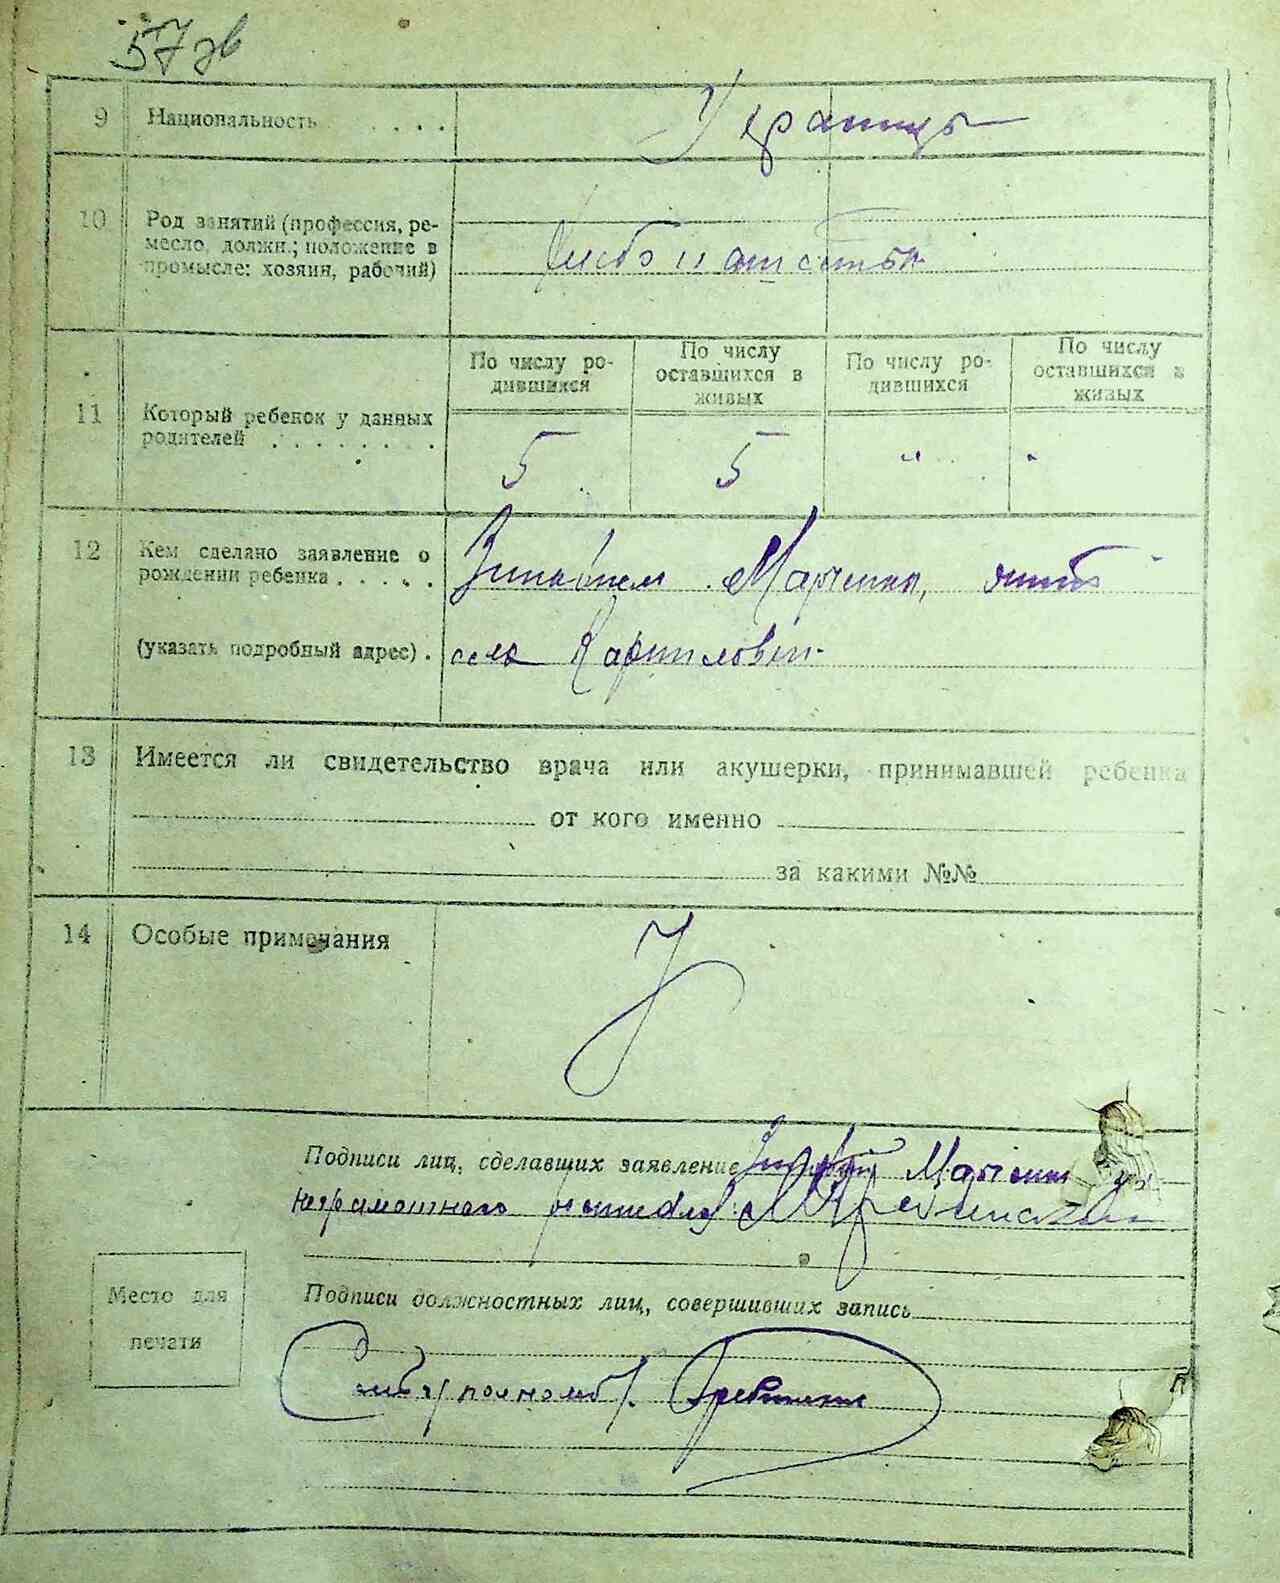 57 зв
9 Национальность . . . . Украинцы
10 Род занятий (профессия, ре-
месло, должн.; положение в
промысле: хозяин, рабочий)
Хлебопашество
По числу ро-
дившихся
По числу
оставшихся в
живых
По числу ро-
дившихся
По числу
оставшихся в
живых
11 Который ребенок у данных
родителей . . . . . . .
5 5 " "
12 Кем сделано заявление о
рождении ребенка . . . . . Марченко,
(указать подробный адрес) . села Карпиловки
13 Имеется ли свидетельство врача или акушерки, принимавшей ребенка
от кого именно
за какими №№
14 Особые примечания
Подписи лиц, сделавших заявление Марченко
неграмотного
Подписи должностных лиц, совершивших запись
Место для
печати